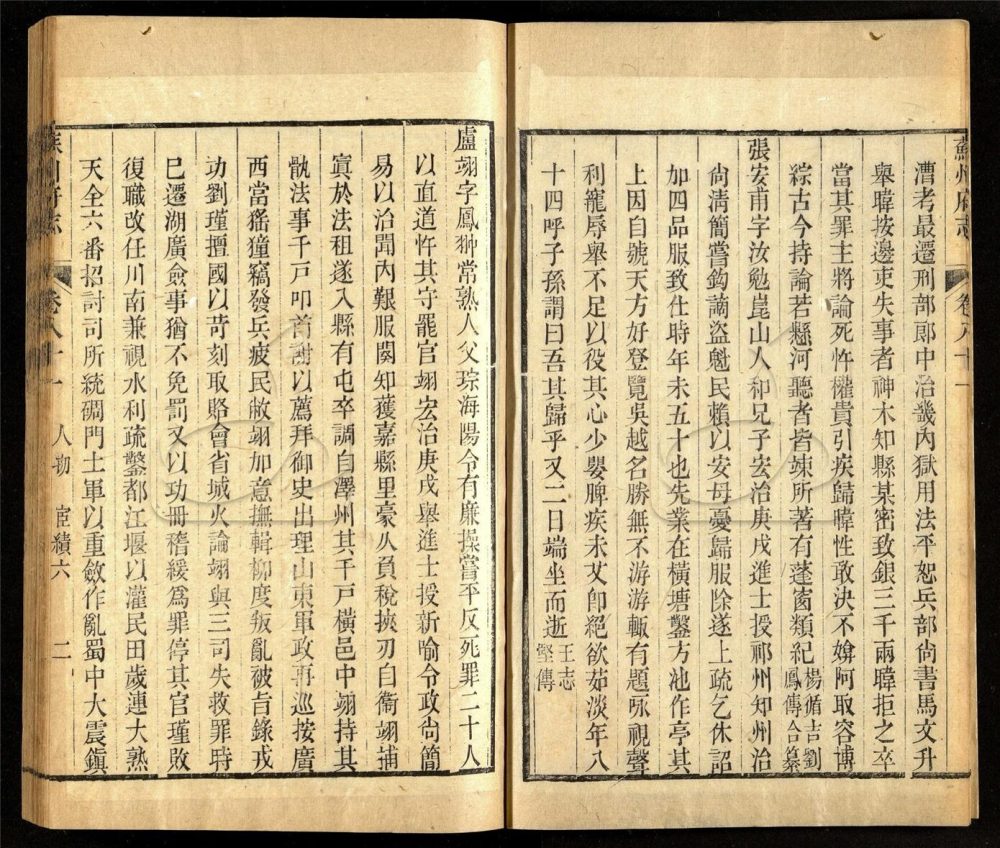 蘇州府志 卷八十一
漕考最遷刑部郎中治畿內獄用法平恕兵部尚書馬文升
舉暐按邊吏失事者神木知縣某密致銀三千兩暐拒之卒
當其罪主將論死忤權貴引疾歸暐性敢決不媕阿取容博
綜古今持論若懸河聽者皆竦所著有蓬窗類紀楊循吉劉鳳傳合纂
張安甫字汝勉崑山人和兄子宏治庚戌進士授祁州知州治
尚清簡嘗鈎擿盜魁民賴以安母憂歸服除遂上疏乞休詔
加四品服致仕時年未五十也先業在橫塘鑿方池作亭其
上因自號天方好登覽吳越名勝無不游游輙有題詠視聲
利寵辱舉不足以役其心少嬰脾疾未艾卽絕欲茹淡年八
十四呼子孫謂曰吾其歸乎又二日端坐而逝王志堅傳
盧翊字鳳翀常熟人父琮海陽令有廉操嘗平反死罪二十人
以直道忤其守罷官翊宏治庚戌舉進士授新喻令政尚簡
易以治聞內艱服闋知獲嘉縣里豪久負稅挾刃自衞翊捕
寘於法租遂入縣有屯卒調自澤州其千戸橫邑中翊持其
骩法事千戸叩首謝以薦拜御史出理山東軍政再巡按廣
西當猺獞竊發兵疲民敝翊加意撫輯柳度叛亂破旨錄戎
功劉瑾擅國以苛刻取賂會省城火論翊與三司失救罪時
巳遷湖廣僉事猶不免罰又以功冊稽緩爲罪停其官瑾敗
復職改任川南兼視水利疏鑿都江堰以灌民田歲連大熟
天全六番招討司所統碉門土軍以重斂作亂蜀中大震鎭
蘇州府志 卷八十一 人物 宦績六 二